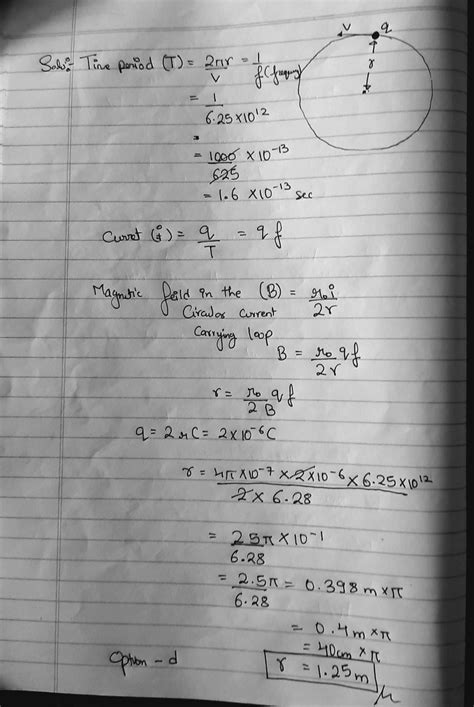 v q
r
Solu:- Time period (T) = 2πr/v = 1/f (frequency)
= 1/6.25×10^12
= 1000/625 × 10^-13
= 1.6 × 10^-13 sec
Current (i) = q/T = q f
Magnetic field in the (B) = μ₀i/2r
Circular current
Carrying loop
B = μ₀ q f/2r
r = μ₀ q f/2B
q = 2 μC = 2×10^-6 C
r = 4π×10^-7 × 2×10^-6 × 6.25×10^12/2 × 6.28
= 25π × 10^-1/6.28
= 2.5π/6.28 = 0.398 m × π
= 0.4 m × π
= 40cm × π
Option - d r = 1.25 m